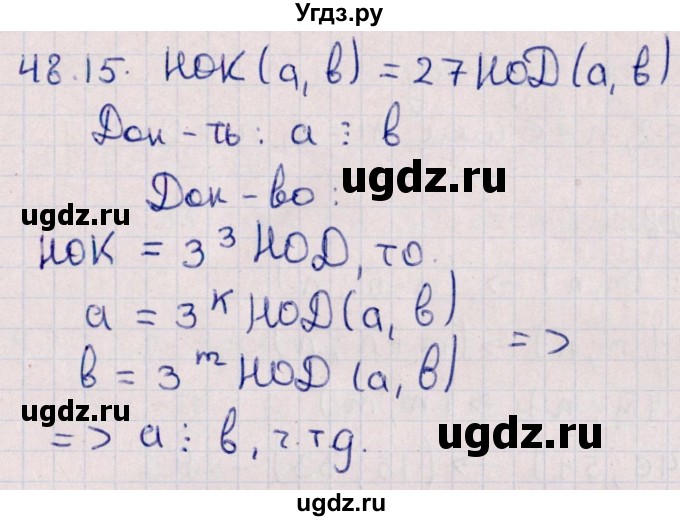 Угдз.ру
48.15. НОК(а, в) = 27 НОД(а, в)
Док-ть: а ⋮ в
Док-во:
ugdz.ru
ugdz.ru
НОК = 3³ НОД, то
ugdz.ru
а = 3ᴷ НОД(а, в)
=>
в = 3ᵐ НОД (а, в)
=> а ⋮ в, ч.тд.
ugdz.ru
ugdz.ru
ugdz.ru